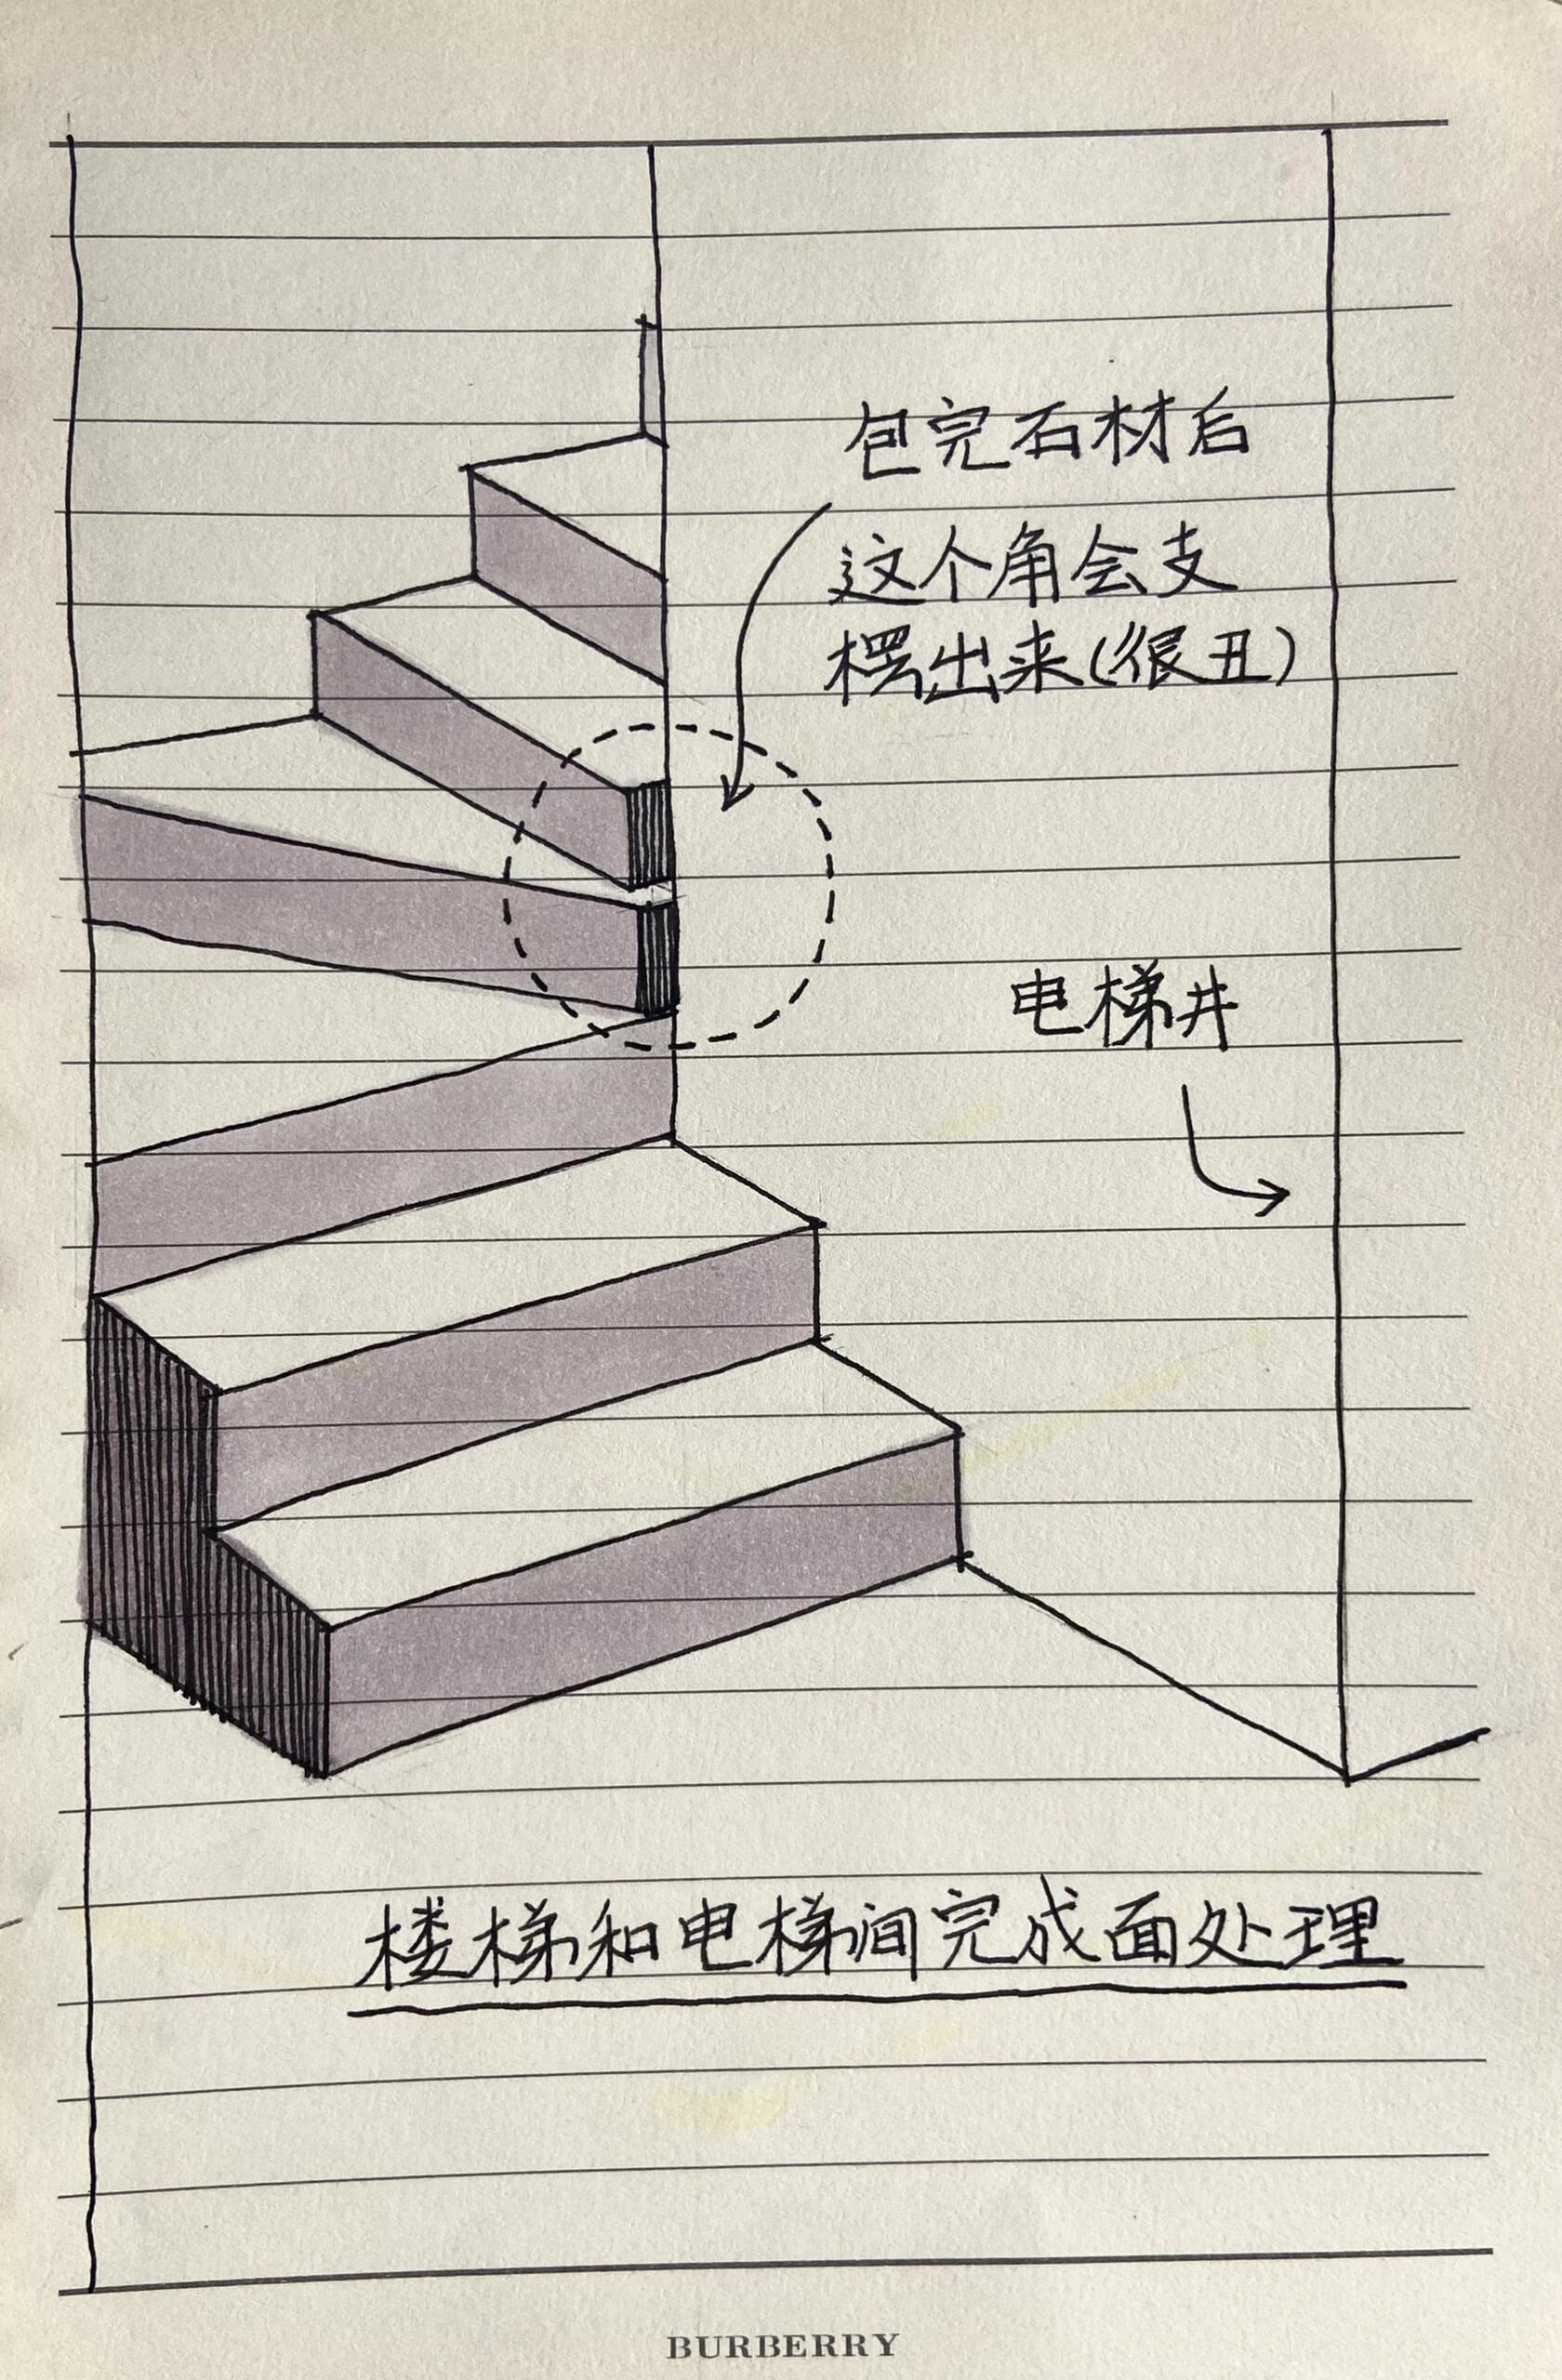 包完石材后
这个角会支
楞出来(很丑)
电梯井
楼梯和电梯间完成面处理
BURBERRY